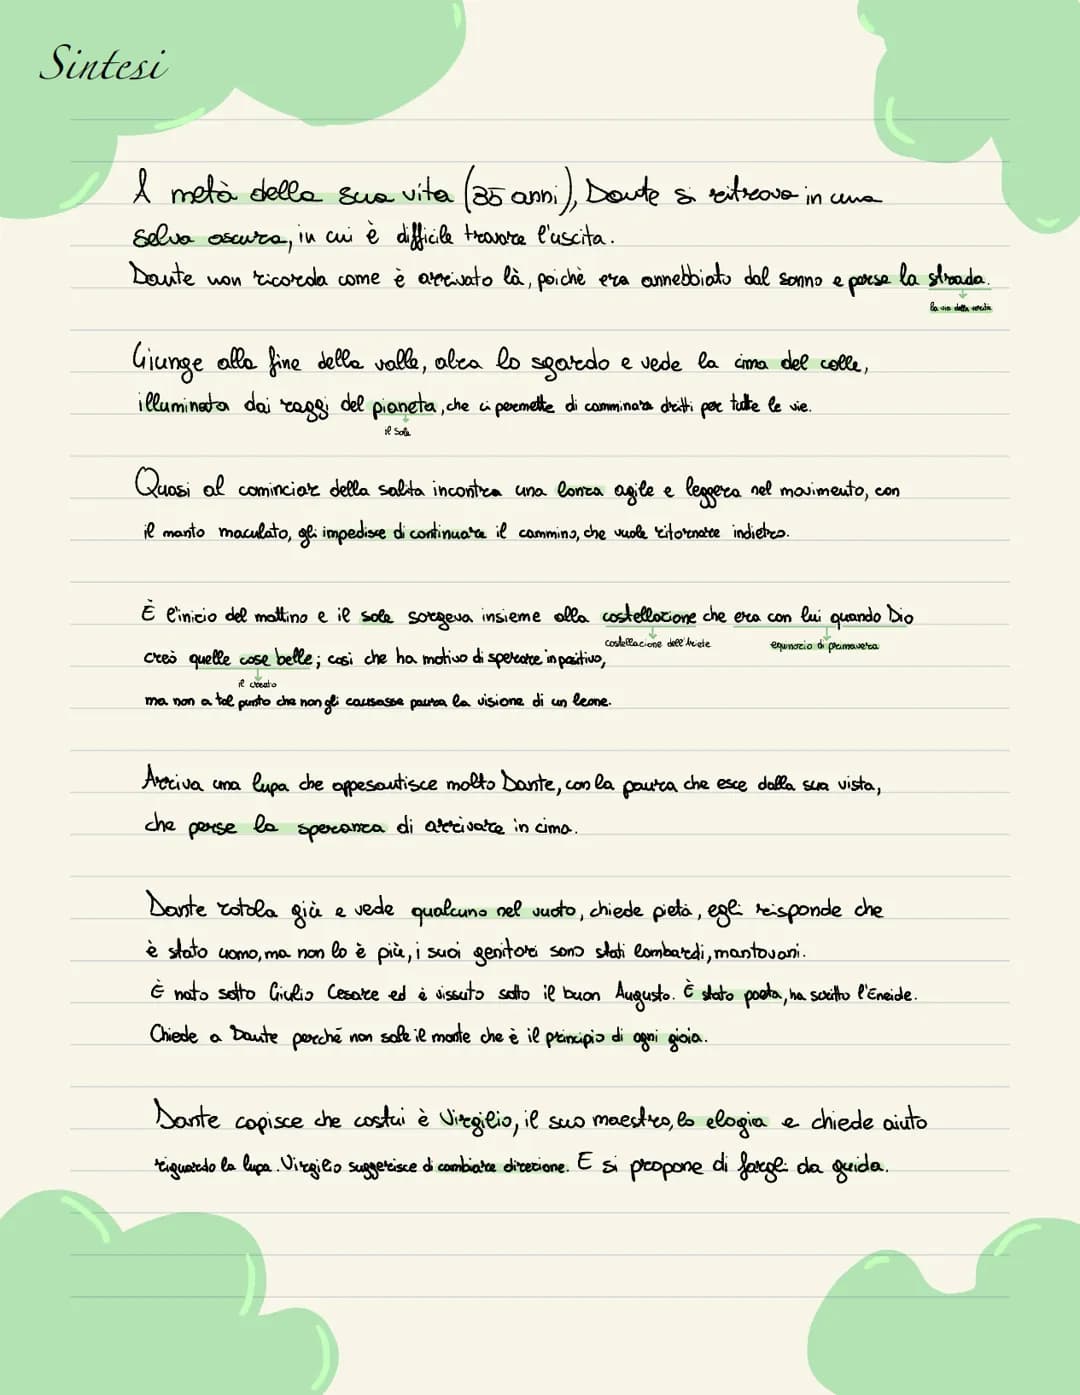 Sintesi
A metà della sua vita (35 anni), Dante si ritrova in una
selva oscura, in cui è difficile trovare l'uscita.
Dante non ricorda come è arrivato là, poichè era annebbiato dal sonno e perse la strada.
la via della verità
Giunge alla fine della valle, alza lo sguardo e vede la cima del colle,
illuminata dai raggi del pianeta, che ci permette di camminare dritti per tutte le vie.
il Sole
Quasi al cominciar della salita incontra una lonza agile e leggera nel movimento, con
il manto maculato, gli impedisce di continuare il cammino, che vuole ritornare indietro.
È l'inizio del mattino e il sole sorgeva insieme alla costellazione che era con lui quando Dio
costellazione dell'Ariete equinozio di primavera
creò quelle cose belle; così che ha motivo di sperare in positivo,
il creato
ma non a tal punto che non gli causasse paura la visione di un leone.
Arriva una lupa che appesantisce molto Dante, con la paura che esce dalla sua vista,
che perse la speranza di arrivare in cima.
Dante rotola giù e vede qualcuno nel vuoto, chiede pietà, egli risponde che
è stato uomo, ma non lo è più, i suoi genitori sono stati lombardi, mantovani.
È nato sotto Giulio Cesare ed è vissuto sotto il buon Augusto. È stato poeta, ha scritto l'Eneide.
Chiede a Dante perché non sale il monte che è il principio di ogni gioia.
Dante capisce che costui è Virgilio, il suo maestro, lo elogia e chiede aiuto
riguardo la lupa. Virgilio suggerisce di cambiare direzione. E si propone di fargli da guida.